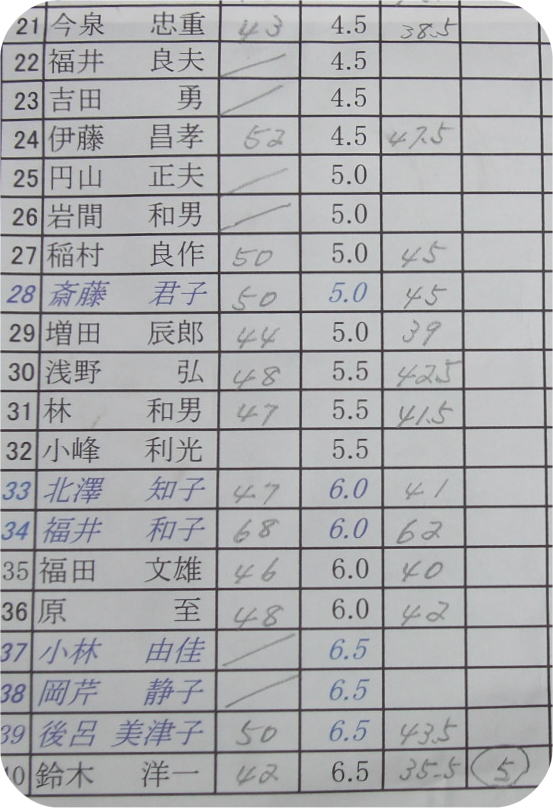 21 今泉 忠重 43 4.5 38.5
22 福井 良夫 4.5
23 吉田 勇 4.5
24 伊藤 昌孝 52 4.5 47.5
25 円山 正夫 5.0
26 岩間 和男 5.0
27 稲村 良作 50 5.0 45
28 斎藤 君子 50 5.0 45
29 増田 辰郎 44 5.0 39
30 浅野 弘 48 5.5 42.5
31 林 和男 47 5.5 41.5
32 小峰 利光 5.5
33 北澤 知子 47 6.0 41
34 福井 和子 68 6.0 62
35 福田 文雄 46 6.0 40
36 原 至 48 6.0 42
37 小林 由佳 6.5
38 岡芹 静子 6.5
39 後呂 美津子 50 6.5 43.5
40 鈴木 洋一 42 6.5 35.5 5